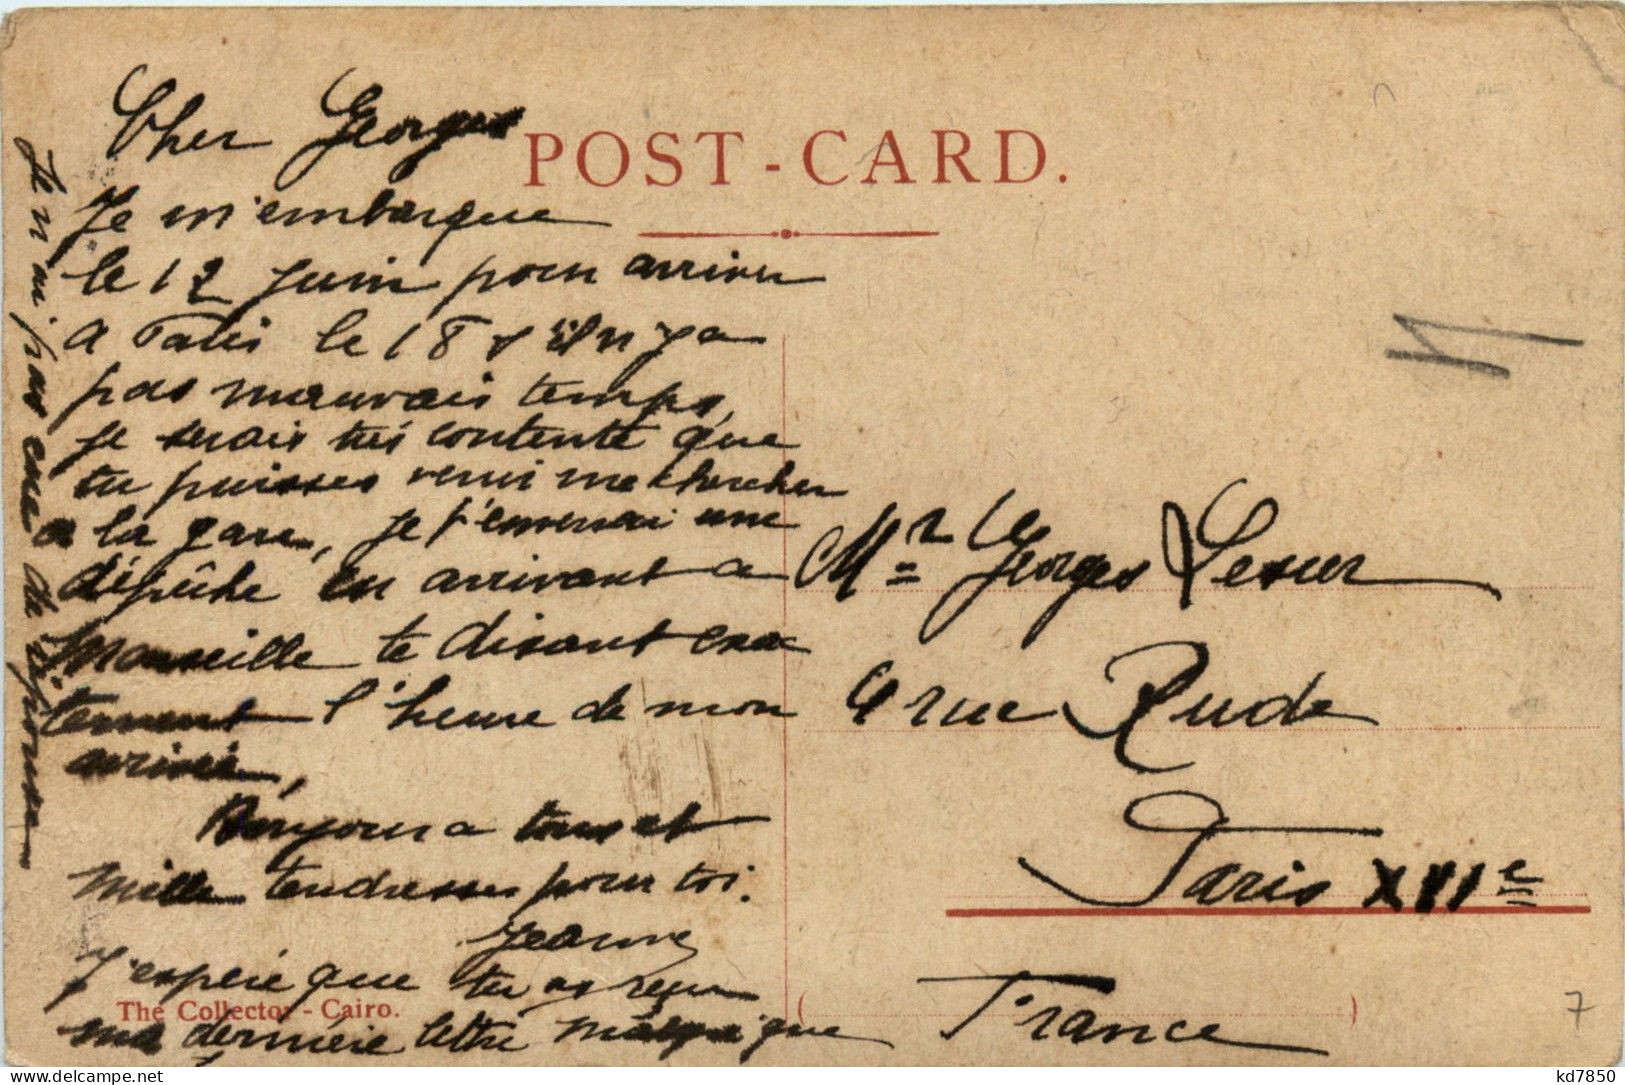 POST-CARD.
Cher Georges
Je m'embarque
le 12 Juin pour arriver
a Paris le 18 s'il n'y a
pas mauvais temps,
je serais très contente que
tu puisses venir me chercher
a la gare, je t'enverrai une
dépêche en arrivant a
Marseille te disant exac
tement l'heure de mon
arrivée,
Bonjour a tous et
mille tendresses pour toi.
Jeanne
J'espère que tu as reçu
ma dernière lettre quoique
Je n'ai pas eue de réponse
The Collector - Cairo.
Mr Georges Lesur
4 rue Rude
Paris XVIe
France
7
kd7850